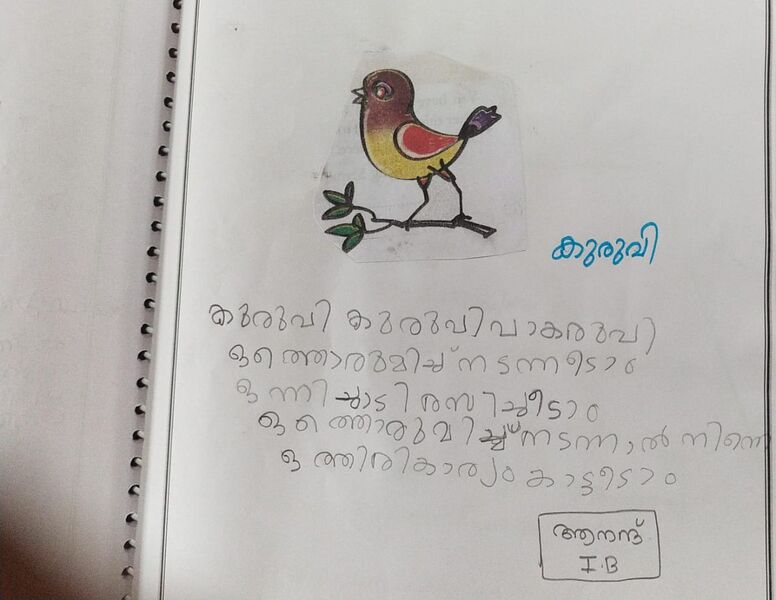 കുരുവി
കുരുവി കുരുവി വാകുരുവി
ഒത്തൊരുമിച്ച് നടന്നീടാം
ഒന്നിച്ചാടി രസിച്ചീടാം
ഒത്തൊരുവിച്ച് നടന്നാൽ നിന്നെ
ഒത്തിരി കാര്യം കാട്ടീടാം
ആനന്ദ്
I.B